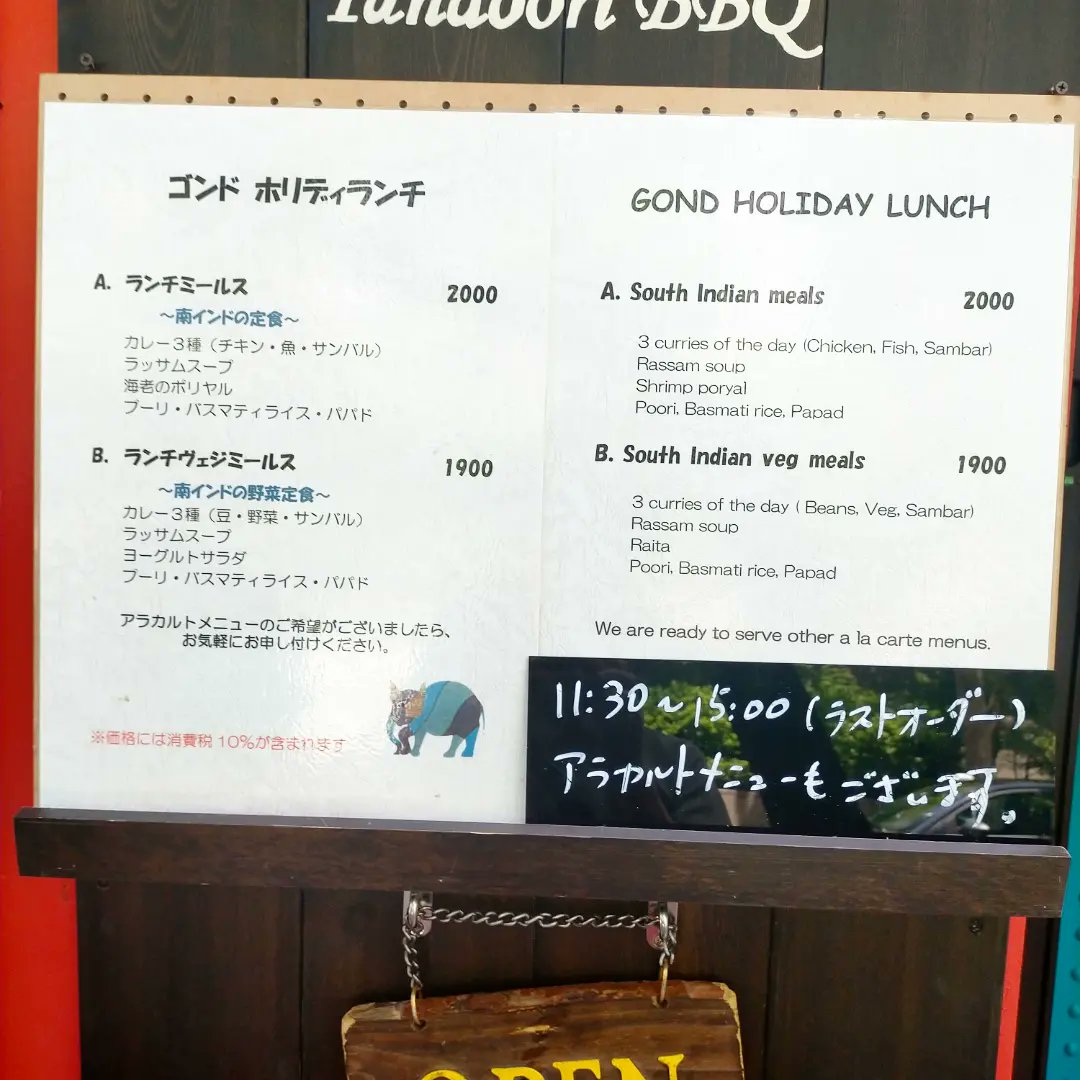 Tandoori BBQ
ゴンド ホリディランチ
A. ランチミールス 2000
～南インドの定食～
カレー３種（チキン・魚・サンバル）
ラッサムスープ
海老のポリヤル
プーリ・バスマティライス・パパド
B. ランチヴェジミールス 1900
～南インドの野菜定食～
カレー３種（豆・野菜・サンバル）
ラッサムスープ
ヨーグルトサラダ
プーリ・バスマティライス・パパド
アラカルトメニューのご希望がございましたら、
お気軽にお申し付けください。
※価格には消費税 10％が含まれます
GOND HOLIDAY LUNCH
A. South Indian meals 2000
3 curries of the day (Chicken, Fish, Sambar)
Rassam soup
Shrimp poryal
Poori, Basmati rice, Papad
B. South Indian veg meals 1900
3 curries of the day ( Beans, Veg, Sambar)
Rassam soup
Raita
Poori, Basmati rice, Papad
We are ready to serve other a la carte menus.
11:30～15:00 (ラストオーダー)
アラカルトメニューもございます。
OPEN